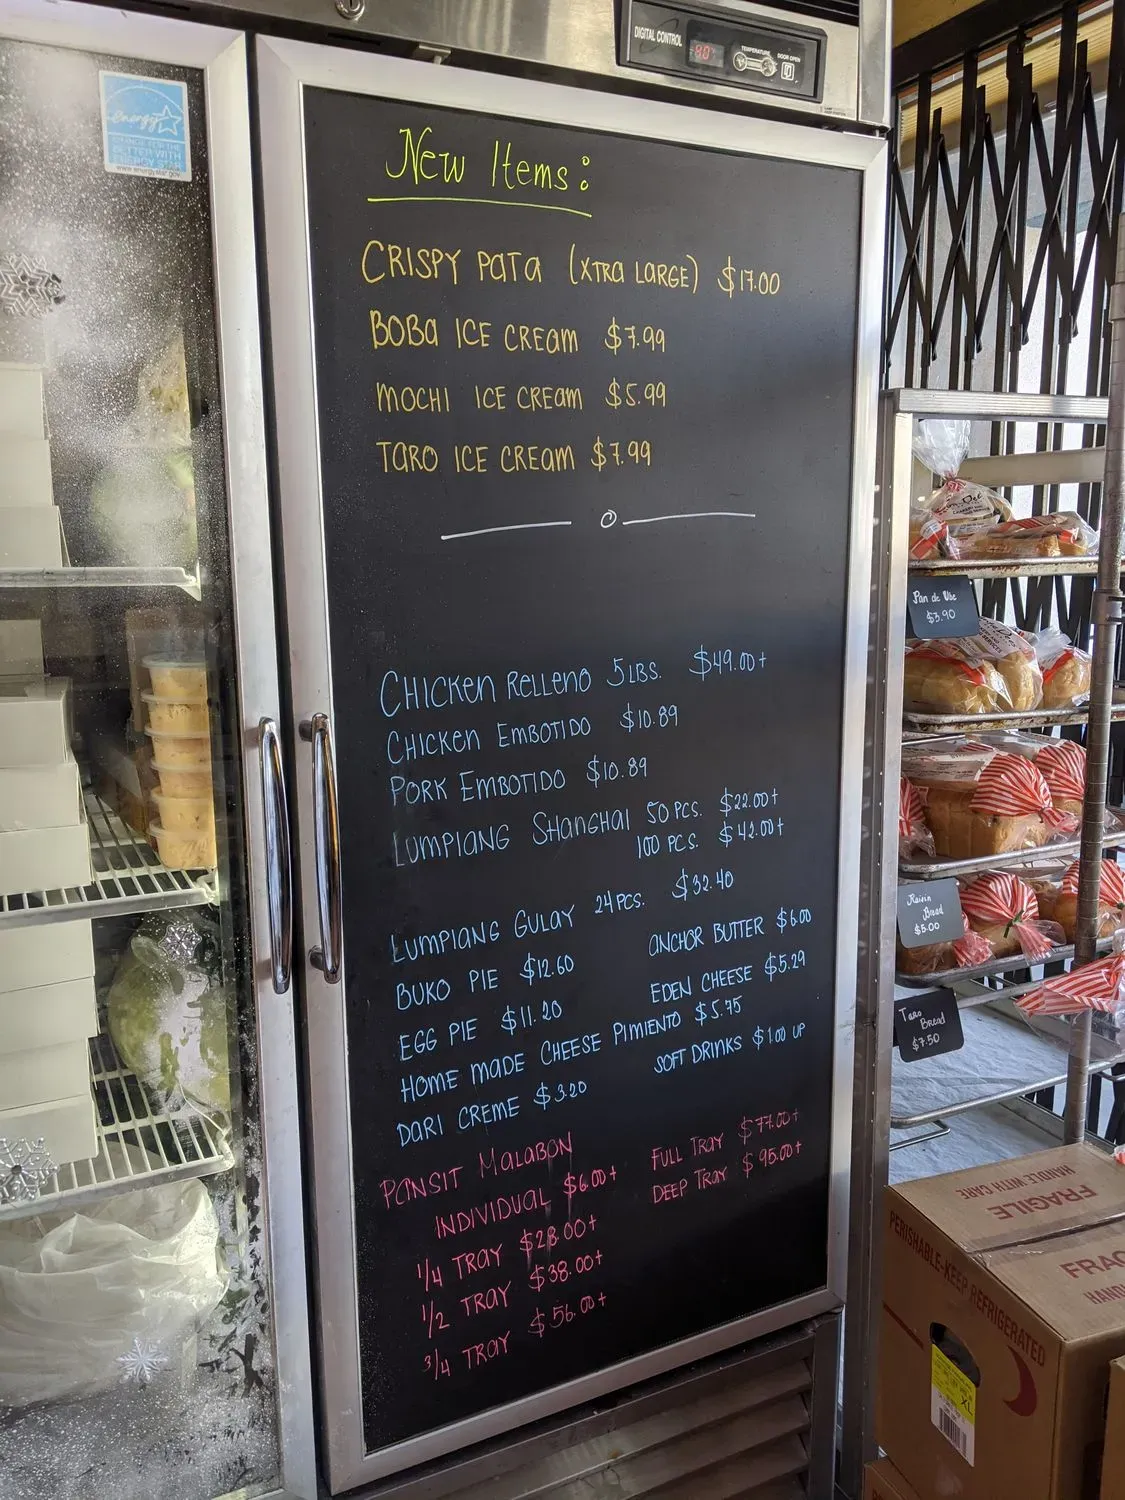 DIGITAL CONTROL
40°
TEMPERATURE
DOOR OPEN
energy
www.energystar.gov
New Items:
CRISPY PATA (XTRA LARGE) $17.00
BOBA ICE CREAM $7.99
MOCHI ICE CREAM $5.99
TARO ICE CREAM $7.99
CHICKEN RELLENO 5 LBS. $49.00+
CHICKEN EMBOTIDO $10.89
PORK EMBOTIDO $10.89
LUMPIANG SHANGHAI 50 PCS. $22.00+
100 PCS. $42.00+
LUMPIANG GULAY 24 PCS. $32.40
BUKO PIE $12.60
ANCHOR BUTTER $6.00
EGG PIE $11.20
EDEN CHEESE $5.29
HOME MADE CHEESE PIMIENTO $5.75
DARI CREME $3.20
SOFT DRINKS $1.00 UP
PANSIT MALABON
INDIVIDUAL $6.00+
1/4 TRAY $28.00+
1/2 TRAY $38.00+
3/4 TRAY $56.00+
FULL TRAY $77.00+
DEEP TRAY $95.00+
Pan de Ube
$3.90
Raisin
Bread
$5.00
Taro
Bread
$7.50
HANDLE WITH CARE
FRAGILE
FRAG
HAND
PERISHABLE-KEEP REFRIGERATED
XL